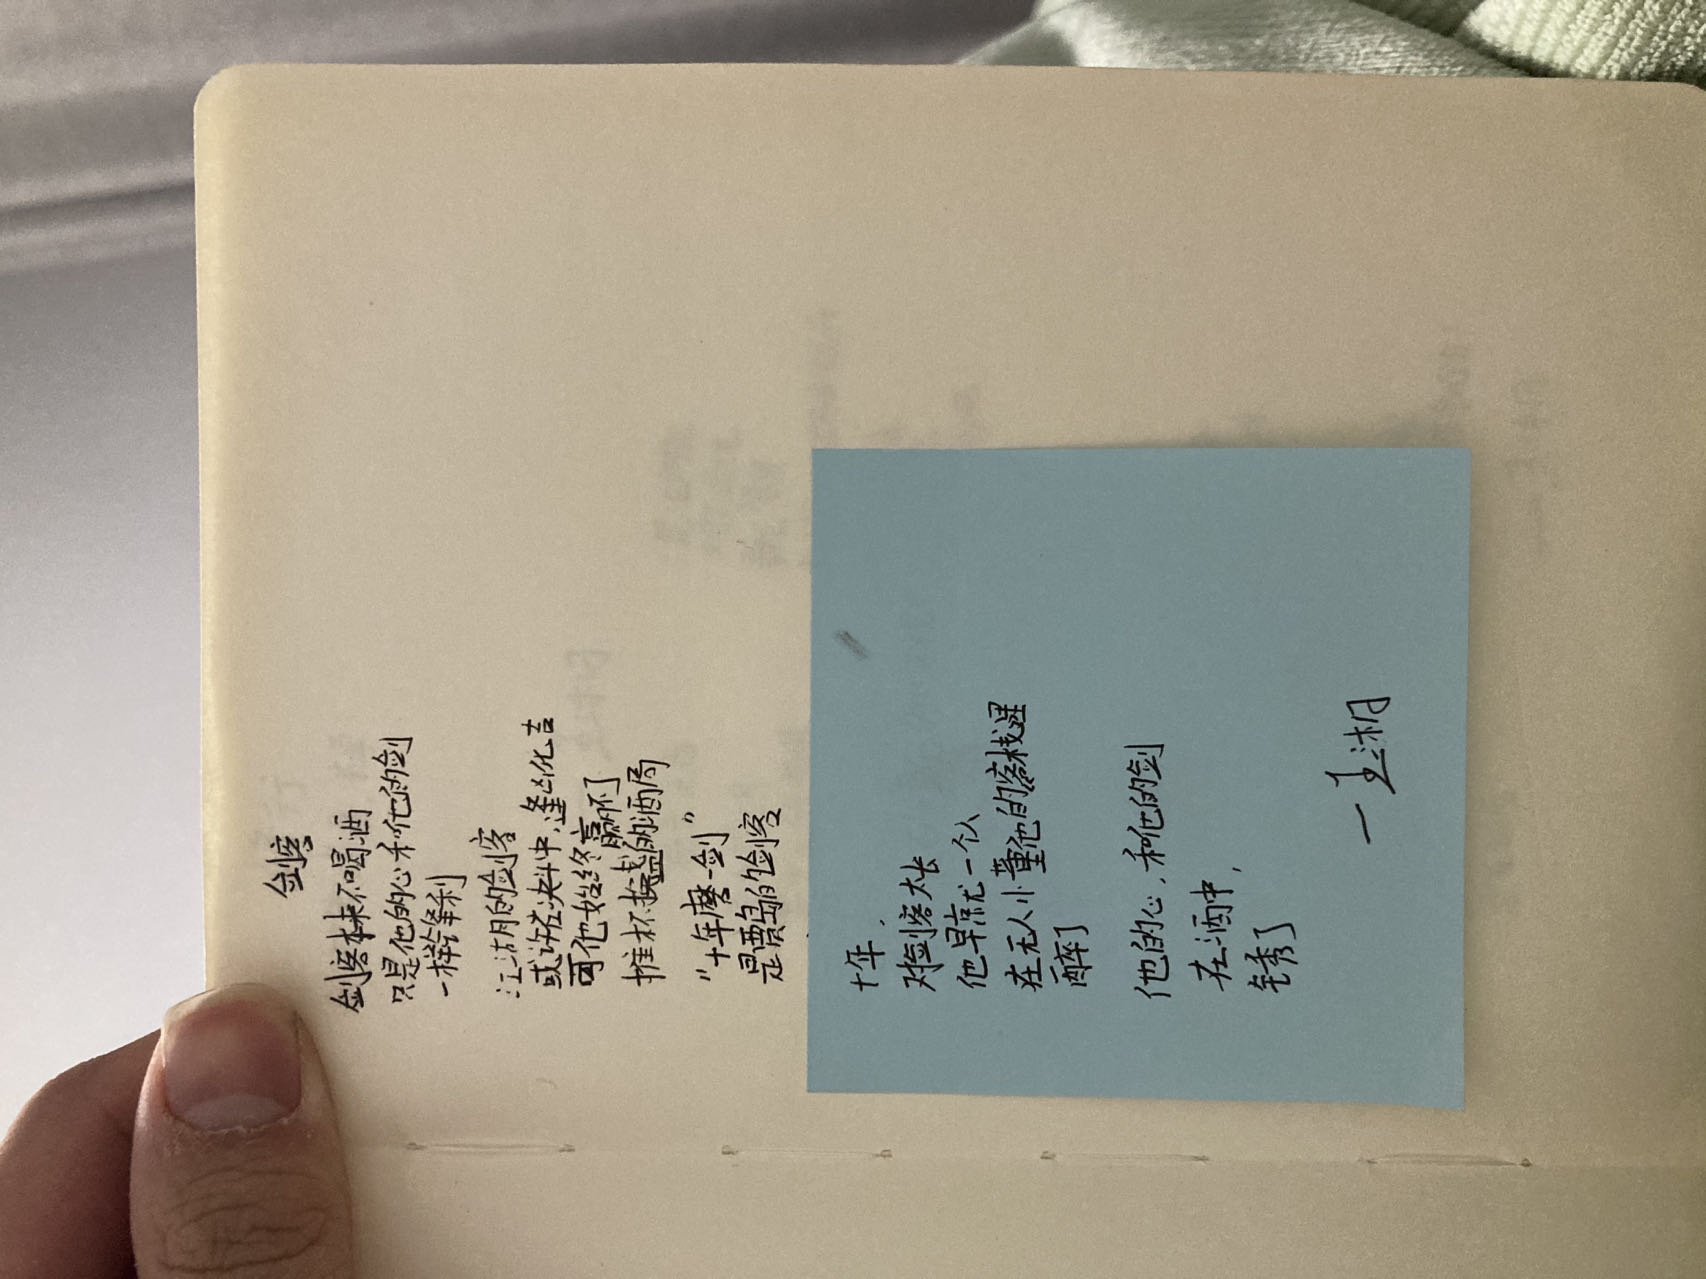 剑客
剑客本来不喝酒
只是他的心和他的剑
一样锋利
江湖的剑客
或许在决斗中,逢凶化吉
可他始终赢不了
推杯换盏的酒局
“十年磨一剑”
是贾岛的剑客
十年,
对剑客太长
他早就一个人
在无人小董他的客栈里
醉了
他的心,和他的剑
在酒中,
锈了
一王湘